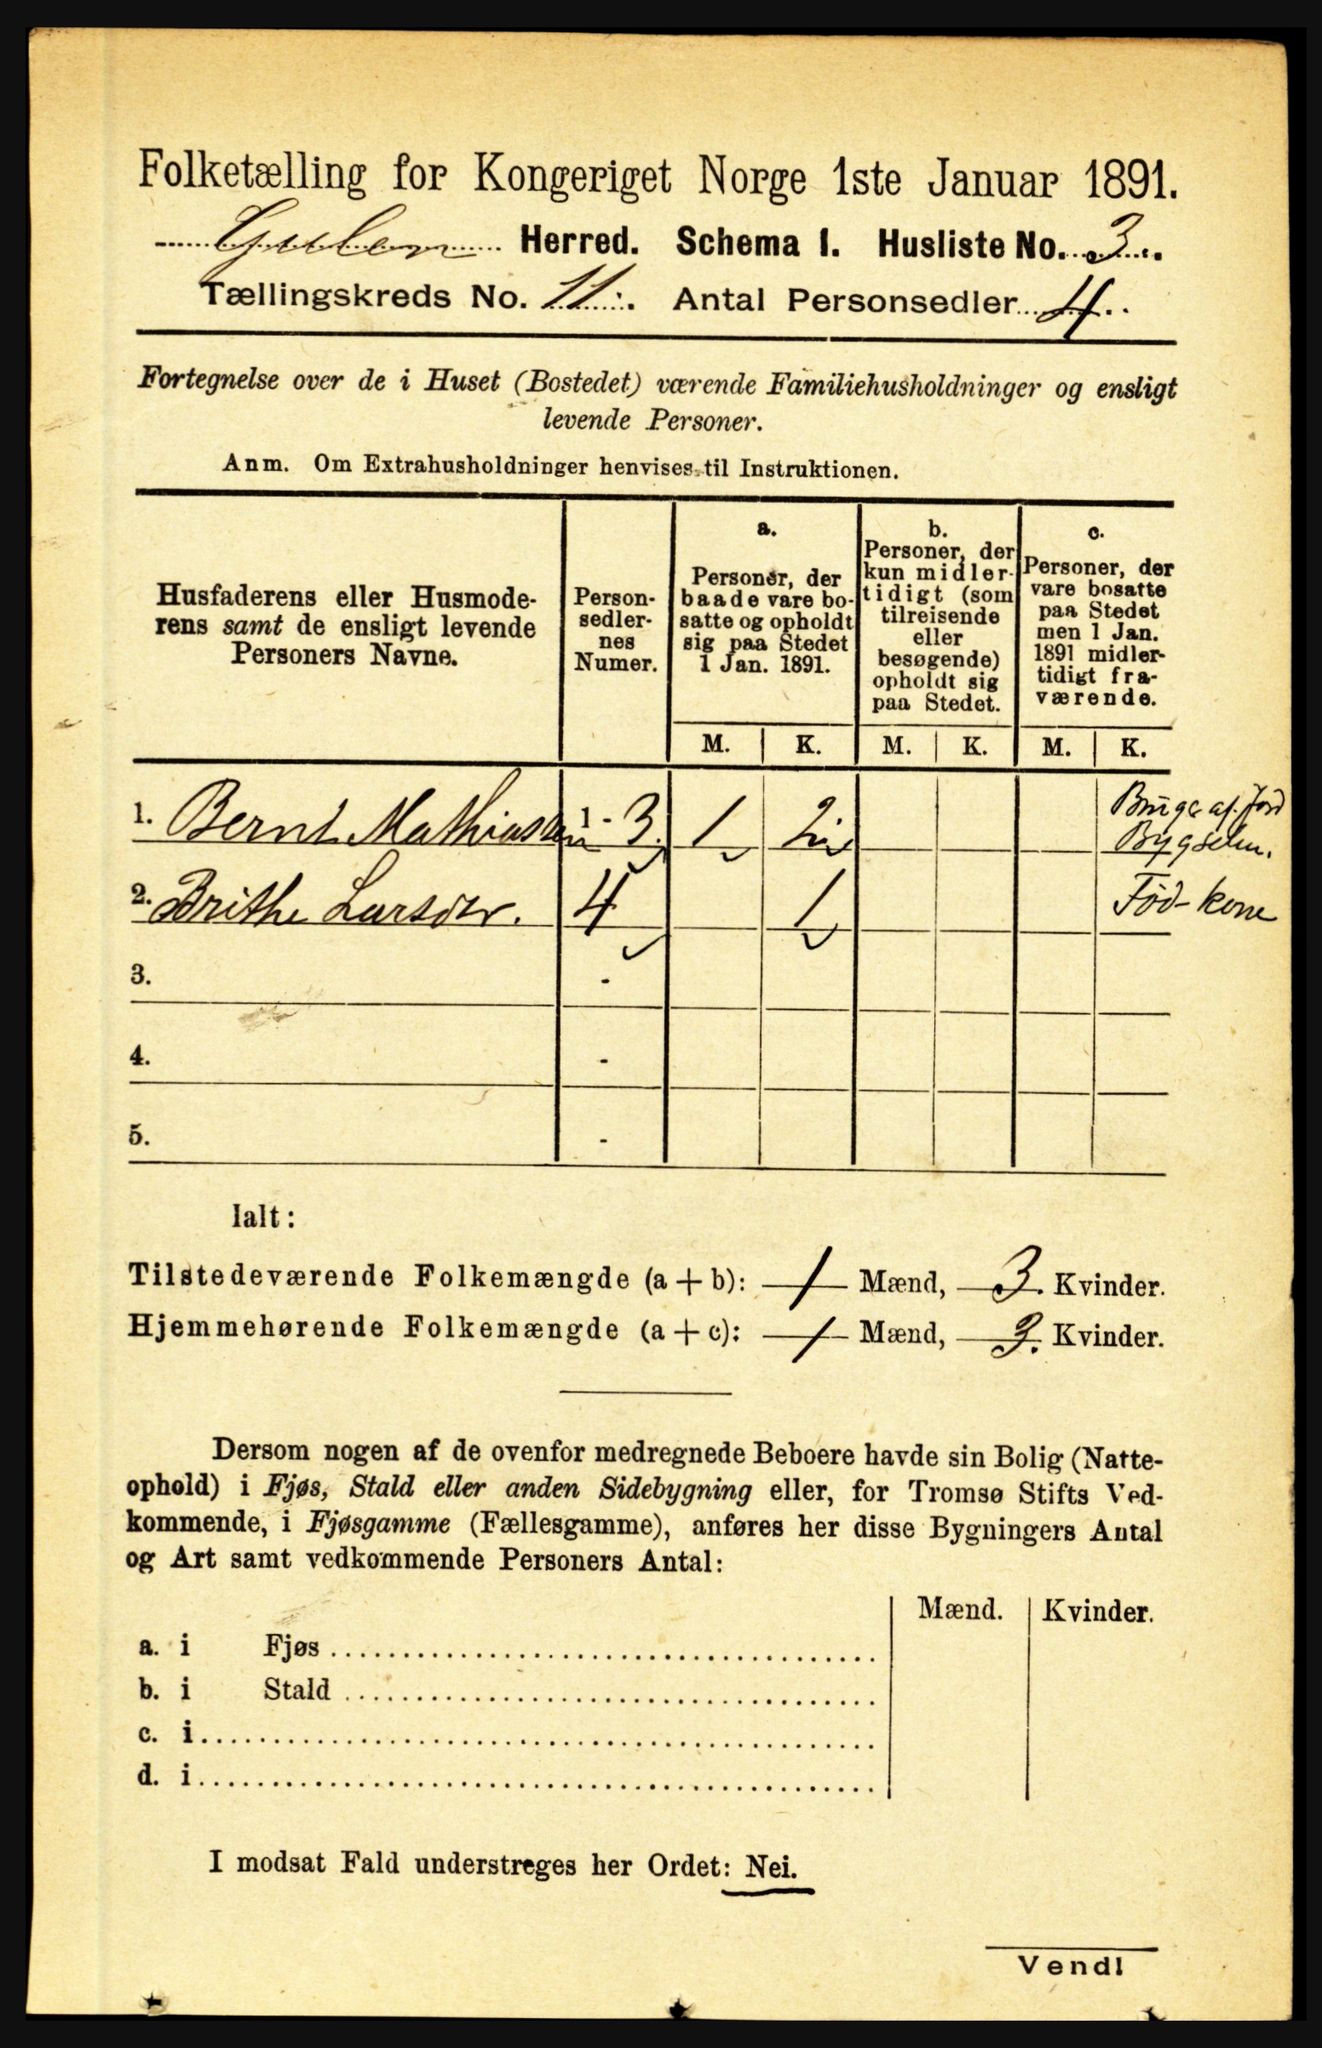 Folketælling for Kongeriget Norge 1ste Januar 1891.
Gulen Herred. Schema I. Husliste No. 3.
Tællingskreds No. 11. Antal Personsedler 4.
Fortegnelse over de i Huset (Bostedet) værende Familiehusholdninger og ensligt
levende Personer.
Anm. Om Extrahusholdninger henvises til Instruktionen.
Husfaderens eller Husmode-
rens samt de ensligt levende
Personers Navne.
Person-
sedler-
nes
Numer.
a.
Personer, der
baade vare bo-
satte og opholdt
sig paa Stedet
1 Jan. 1891.
b.
Personer, der
kun midler-
tidigt (som
tilreisende
eller
besøgende)
opholdt sig
paa Stedet.
c.
Personer, der
vare bosatte
paa Stedet
men 1 Jan.
1891 midler-
tidigt fra-
værende.
M. K. M. K. M. K.
1. Bernt Mathiassen 1 - 3. 1 2 Brug af Jord
Bygselm.
2. Brithe Larsdtr. 4 1 Fød-kone
3. -
4. -
5. -
Ialt:
Tilstedeværende Folkemængde (a + b): 1 Mænd, 3. Kvinder.
Hjemmehørende Folkemængde (a + c): 1 Mænd, 3. Kvinder.
Dersom nogen af de ovenfor medregnede Beboere havde sin Bolig (Natte-
ophold) i Fjøs, Stald eller anden Sidebygning eller, for Tromsø Stifts Ved-
kommende, i Fjøsgamme (Fællesgamme), anføres her disse Bygningers Antal
og Art samt vedkommende Personers Antal:
Mænd. Kvinder.
a. i Fjøs
b. i Stald
c. i
d. i
I modsat Fald understreges her Ordet: Nei.
Vend!